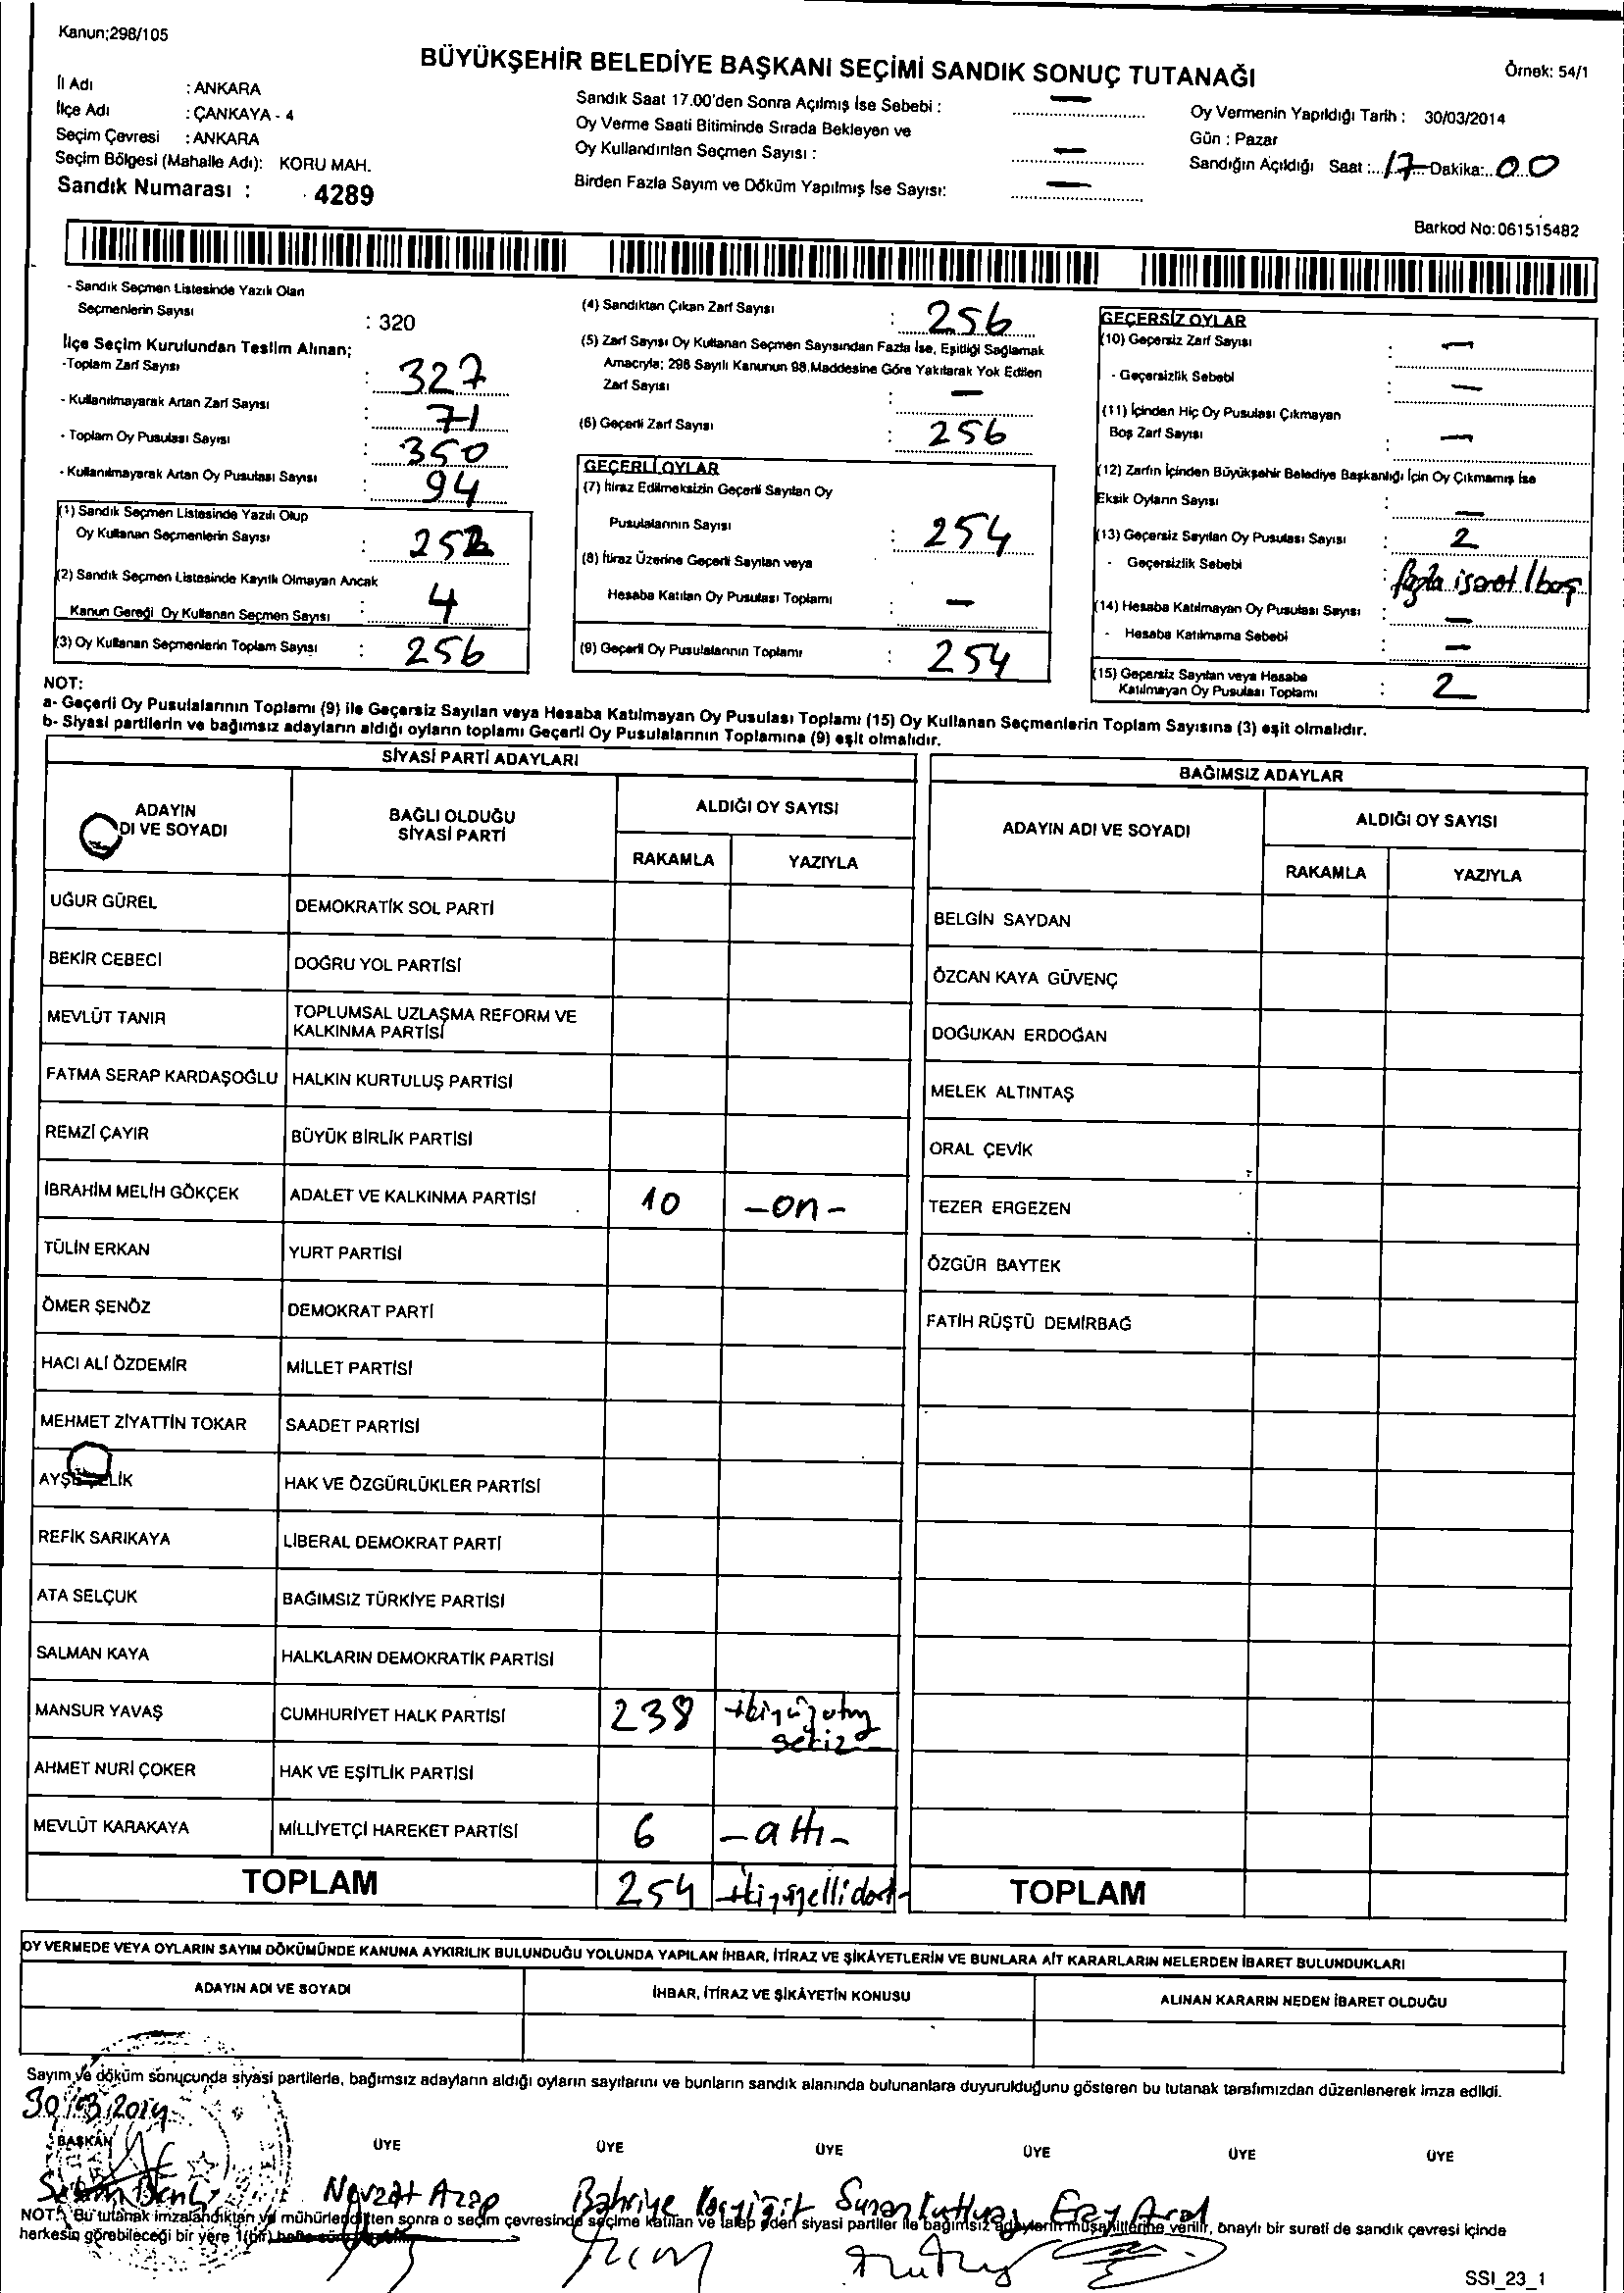 Kanun;298/105
BÜYÜKŞEHİR BELEDİYE BAŞKANI SEÇİMİ SANDIK SONUÇ TUTANAĞI
Örnek: 54/1
İl Adı : ANKARA
İlçe Adı : ÇANKAYA - 4
Seçim Çevresi : ANKARA
Seçim Bölgesi (Mahalle Adı): KORU MAH.
Sandık Numarası : 4289
Sandık Saat 17.00'den Sonra Açılmış İse Sebebi : —
Oy Verme Saati Bitiminde Sırada Bekleyen ve
Oy Kullandırılan Seçmen Sayısı : —
Birden Fazla Sayım ve Döküm Yapılmış İse Sayısı: —
Oy Vermenin Yapıldığı Tarih : 30/03/2014
Gün : Pazar
Sandığın Açıldığı Saat :...17...Dakika:..00
Barkod No:061515482
- Sandık Seçmen Listesinde Yazılı Olan
Seçmenlerin Sayısı : 320
İlçe Seçim Kurulundan Teslim Alınan;
-Toplam Zarf Sayısı : 327
- Kullanılmayarak Artan Zarf Sayısı : 71
- Toplam Oy Pusulası Sayısı : 350
- Kullanılmayarak Artan Oy Pusulası Sayısı : 94
(1) Sandık Seçmen Listesinde Yazılı Olup
Oy Kullanan Seçmenlerin Sayısı : 252
(2) Sandık Seçmen Listesinde Kayıtlı Olmayan Ancak
Kanun Gereği Oy Kullanan Seçmen Sayısı : 4
(3) Oy Kullanan Seçmenlerin Toplam Sayısı : 256
(4) Sandıktan Çıkan Zarf Sayısı : 256
(5) Zarf Sayısı Oy Kullanan Seçmen Sayısından Fazla İse, Eşitliği Sağlamak
Amacıyla; 298 Sayılı Kanunun 98.Maddesine Göre Yakılarak Yok Edilen
Zarf Sayısı : —
(6) Geçerli Zarf Sayısı : 256
GEÇERLİ OYLAR
(7) İtiraz Edilmeksizin Geçerli Sayılan Oy
Pusulalarının Sayısı : 254
(8) İtiraz Üzerine Geçerli Sayılan veya
Hesaba Katılan Oy Pusulası Toplamı : —
(9) Geçerli Oy Pusulalarının Toplamı : 254
GEÇERSİZ OYLAR
(10) Geçersiz Zarf Sayısı : —
- Geçersizlik Sebebi : —
(11) İçinden Hiç Oy Pusulası Çıkmayan
Boş Zarf Sayısı : —
(12) Zarfın İçinden Büyükşehir Belediye Başkanlığı İçin Oy Çıkmamış İse
Eksik Oyların Sayısı : —
(13) Geçersiz Sayılan Oy Pusulası Sayısı : 2
- Geçersizlik Sebebi : fazla işaret / boş
(14) Hesaba Katılmayan Oy Pusulası Sayısı : —
- Hesaba Katılmama Sebebi : —
(15) Geçersiz Sayılan veya Hesaba
Katılmayan Oy Pusulası Toplamı : 2
NOT:
a- Geçerli Oy Pusulalarının Toplamı (9) ile Geçersiz Sayılan veya Hesaba Katılmayan Oy Pusulası Toplamı (15) Oy Kullanan Seçmenlerin Toplam Sayısına (3) eşit olmalıdır.
b- Siyasi partilerin ve bağımsız adayların aldığı oyların toplamı Geçerli Oy Pusulalarının Toplamına (9) eşit olmalıdır.
SİYASİ PARTİ ADAYLARI
ADAYIN
DI VE SOYADI
BAĞLI OLDUĞU
SİYASİ PARTİ
ALDIĞI OY SAYISI
RAKAMLA YAZIYLA
UĞUR GÜREL DEMOKRATİK SOL PARTİ
BEKİR CEBECİ DOĞRU YOL PARTİSİ
MEVLÜT TANIR TOPLUMSAL UZLAŞMA REFORM VE
KALKINMA PARTİSİ
FATMA SERAP KARDAŞOĞLU HALKIN KURTULUŞ PARTİSİ
REMZİ ÇAYIR BÜYÜK BİRLİK PARTİSİ
İBRAHİM MELİH GÖKÇEK ADALET VE KALKINMA PARTİSİ 10 -on-
TÜLİN ERKAN YURT PARTİSİ
ÖMER ŞENÖZ DEMOKRAT PARTİ
HACI ALİ ÖZDEMİR MİLLET PARTİSİ
MEHMET ZİYATTİN TOKAR SAADET PARTİSİ
AYŞE ÇELİK HAK VE ÖZGÜRLÜKLER PARTİSİ
REFİK SARIKAYA LİBERAL DEMOKRAT PARTİ
ATA SELÇUK BAĞIMSIZ TÜRKİYE PARTİSİ
SALMAN KAYA HALKLARIN DEMOKRATİK PARTİSİ
MANSUR YAVAŞ CUMHURİYET HALK PARTİSİ 238 ikiyüzotuz
sekiz
AHMET NURİ ÇOKER HAK VE EŞİTLİK PARTİSİ
MEVLÜT KARAKAYA MİLLİYETÇİ HAREKET PARTİSİ 6 -altı-
TOPLAM 254 ikiyüzellidört-
BAĞIMSIZ ADAYLAR
ADAYIN ADI VE SOYADI
ALDIĞI OY SAYISI
RAKAMLA YAZIYLA
BELGİN SAYDAN
ÖZCAN KAYA GÜVENÇ
DOĞUKAN ERDOĞAN
MELEK ALTINTAŞ
ORAL ÇEVİK
TEZER ERGEZEN
ÖZGÜR BAYTEK
FATİH RÜŞTÜ DEMİRBAĞ
TOPLAM
OY VERMEDE VEYA OYLARIN SAYIM DÖKÜMÜNDE KANUNA AYKIRILIK BULUNDUĞU YOLUNDA YAPILAN İHBAR, İTİRAZ VE ŞİKÂYETLERİN VE BUNLARA AİT KARARLARIN NELERDEN İBARET BULUNDUKLARI
ADAYIN ADI VE SOYADI
İHBAR, İTİRAZ VE ŞİKÂYETİN KONUSU
ALINAN KARARIN NEDEN İBARET OLDUĞU
Sayım ve döküm sonucunda siyasi partilerle, bağımsız adayların aldığı oyların sayılarını ve bunların sandık alanında bulunanlara duyurulduğunu gösteren bu tutanak tarafımızdan düzenlenerek imza edildi.
30/03/2014
BAŞKAN ÜYE ÜYE ÜYE ÜYE ÜYE ÜYE
Nevzat Azap Bahriye Koçyiğit Suzan Kutluay Eray Aral
NOT: Bu tutanak imzalandıktan ve mühürlendikten sonra o seçim çevresinde seçime katılan ve talep eden siyasi partiler ile bağımsız adayların müşahitlerine verilir, onaylı bir sureti de sandık çevresi içinde
herkesin görebileceği bir yere 1(bir)
SSI_23_1